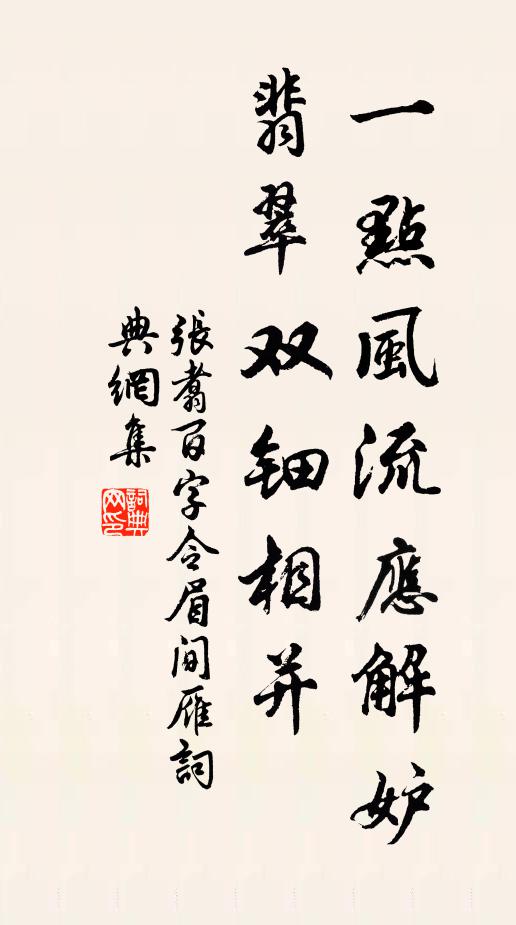 一點風流應解妒
翡翠双鈿相并
張翥百字令眉間雁詞
典網集
詞典网印